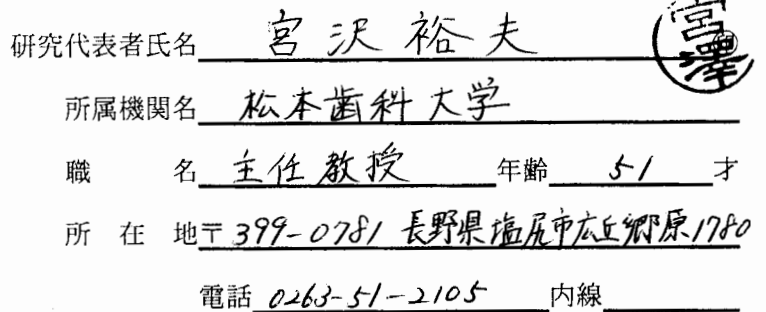 研究代表者氏名 宮沢裕夫 宮澤 印
所属機関名 松本歯科大学
職 名 主任教授 年齢 51 才
所 在 地 〒399-0781 長野県塩尻市広丘郷原1780
電話 0263-51-2105 内線